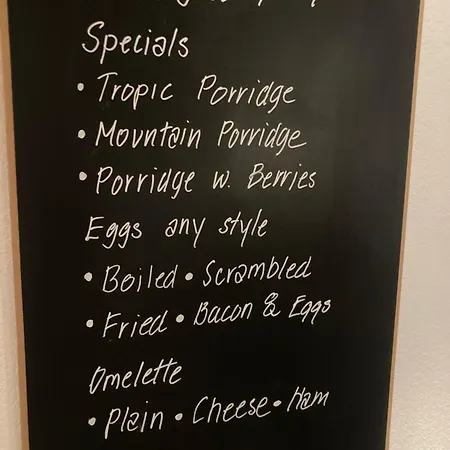 Specials
• Tropic Porridge
• Mountain Porridge
• Porridge w. Berries
Eggs any style
• Boiled • Scrambled
• Fried • Bacon & Eggs
Omelette
• Plain • Cheese • Ham